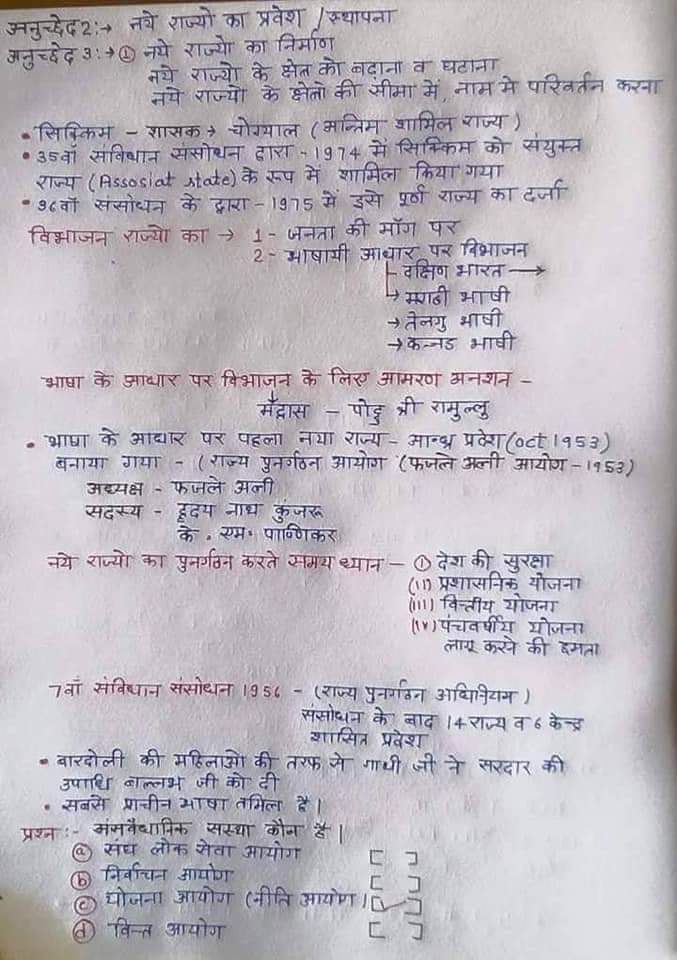 अनुच्छेद 2:→ नये राज्यो का प्रवेश /स्थापना
अनुच्छेद 3:→ ① नये राज्यो का निर्माण
नये राज्यो के क्षेत्र को बढ़ाना व घटाना
नये राज्यो के क्षेत्रो की सीमा में, नाम मे परिवर्तन करना
• सिक्किम - शासक → चोग्याल (अन्तिम शामिल राज्य)
• 35वाँ संविधान संसोधन द्वारा - 1974 में सिक्किम को संयुक्त
राज्य (Assosiat state) के रूप में शामिल किया गया
• 36वाँ संसोधन के द्वारा - 1975 में इसे पूर्ण राज्य का दर्जा
विभाजन राज्यो का → 1- जनता की माँग पर
2- भाषायी आधार पर विभाजन
दक्षिण भारत →
→ मराठी भाषी
→ तेलगु भाषी
→ कन्नड भाषी
भाषा के आधार पर विभाजन के लिए आमरण अनशन -
मद्रास - पोट्टु श्री रामुल्लु
• भाषा के आधार पर पहला नया राज्य - आन्ध्र प्रदेश (oct 1953)
बनाया गया - (राज्य पुनर्गठन आयोग (फजले अली आयोग - 1953)
अध्यक्ष - फजले अली
सदस्य - हृदय नाथ कुंजरू
के. एम. पाण्णिकर
नये राज्यो का पुनर्गठन करते समय ध्यान - ① देश की सुरक्षा
(ii) प्रशासनिक योजना
(iii) वित्तीय योजना
(iv) पंचवर्षीय योजना
लागू करने की क्षमता
7वाँ संविधान संसोधन 1956 - (राज्य पुनर्गठन अधिनियम)
संसोधन के बाद 14 राज्य व 6 केन्द्र
शासित प्रदेश
• बारदोली की महिलाओ की तरफ से गाधी जी ने सरदार की
उपाधि बल्लभ जी को दी
• सबसे प्राचीन भाषा तमिल है।
प्रश्न:- असंवैधानिक संस्था कौन है।
ⓐ संघ लोक सेवा आयोग [ ]
ⓑ निर्वाचन आयोग [ ]
ⓒ योजना आयोग (नीति आयोग) [✓]
ⓓ वित्त आयोग [ ]